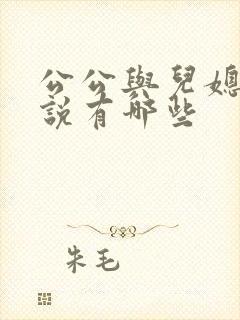 公公與兒媳
說有哪些
朱毛